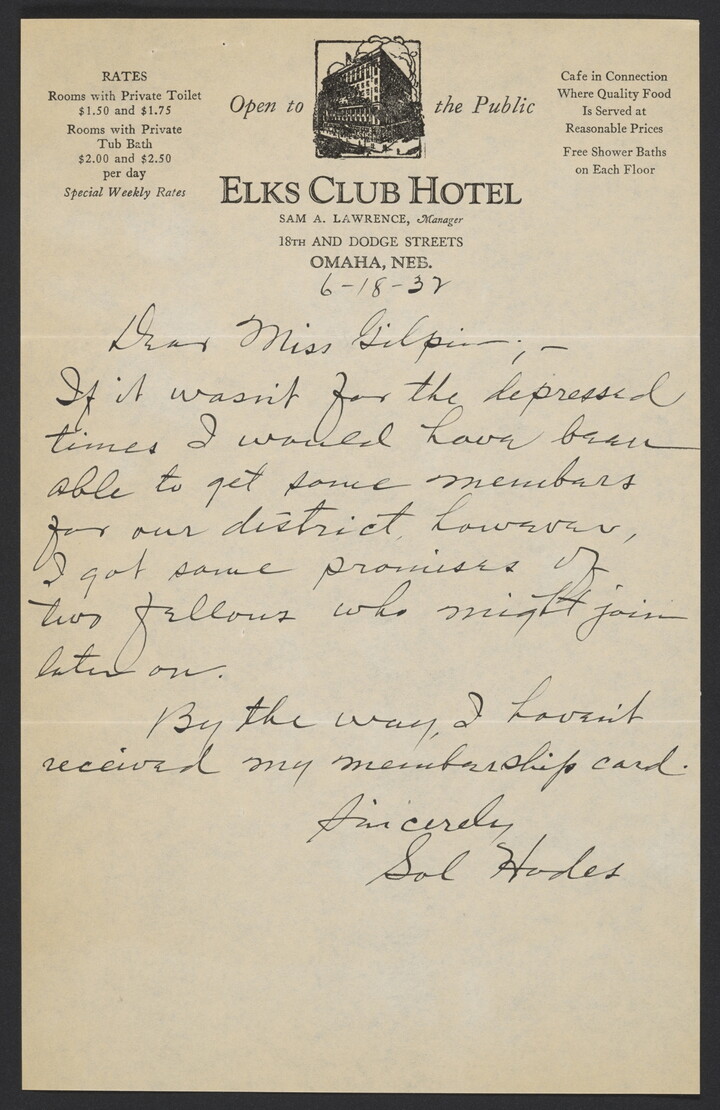 RATES
Rooms with Private Toilet
$1.50 and $1.75
Rooms with Private
Tub Bath
$2.00 and $2.50
per day
Special Weekly Rates
Open to the Public
Cafe in Connection
Where Quality Food
Is Served at
Reasonable Prices
Free Shower Baths
on Each Floor
ELKS CLUB HOTEL
SAM A. LAWRENCE, Manager
18TH AND DODGE STREETS
OMAHA, NEB.
6-18-32
Dear Miss Gilpin;-
If it wasn't for the depressed
times I would have been
able to get some members
for our district, however,
I got some promises of
two fellows who might join
later on.
By the way, I haven't
received my membership card.
Sincerely
Sol Hodes